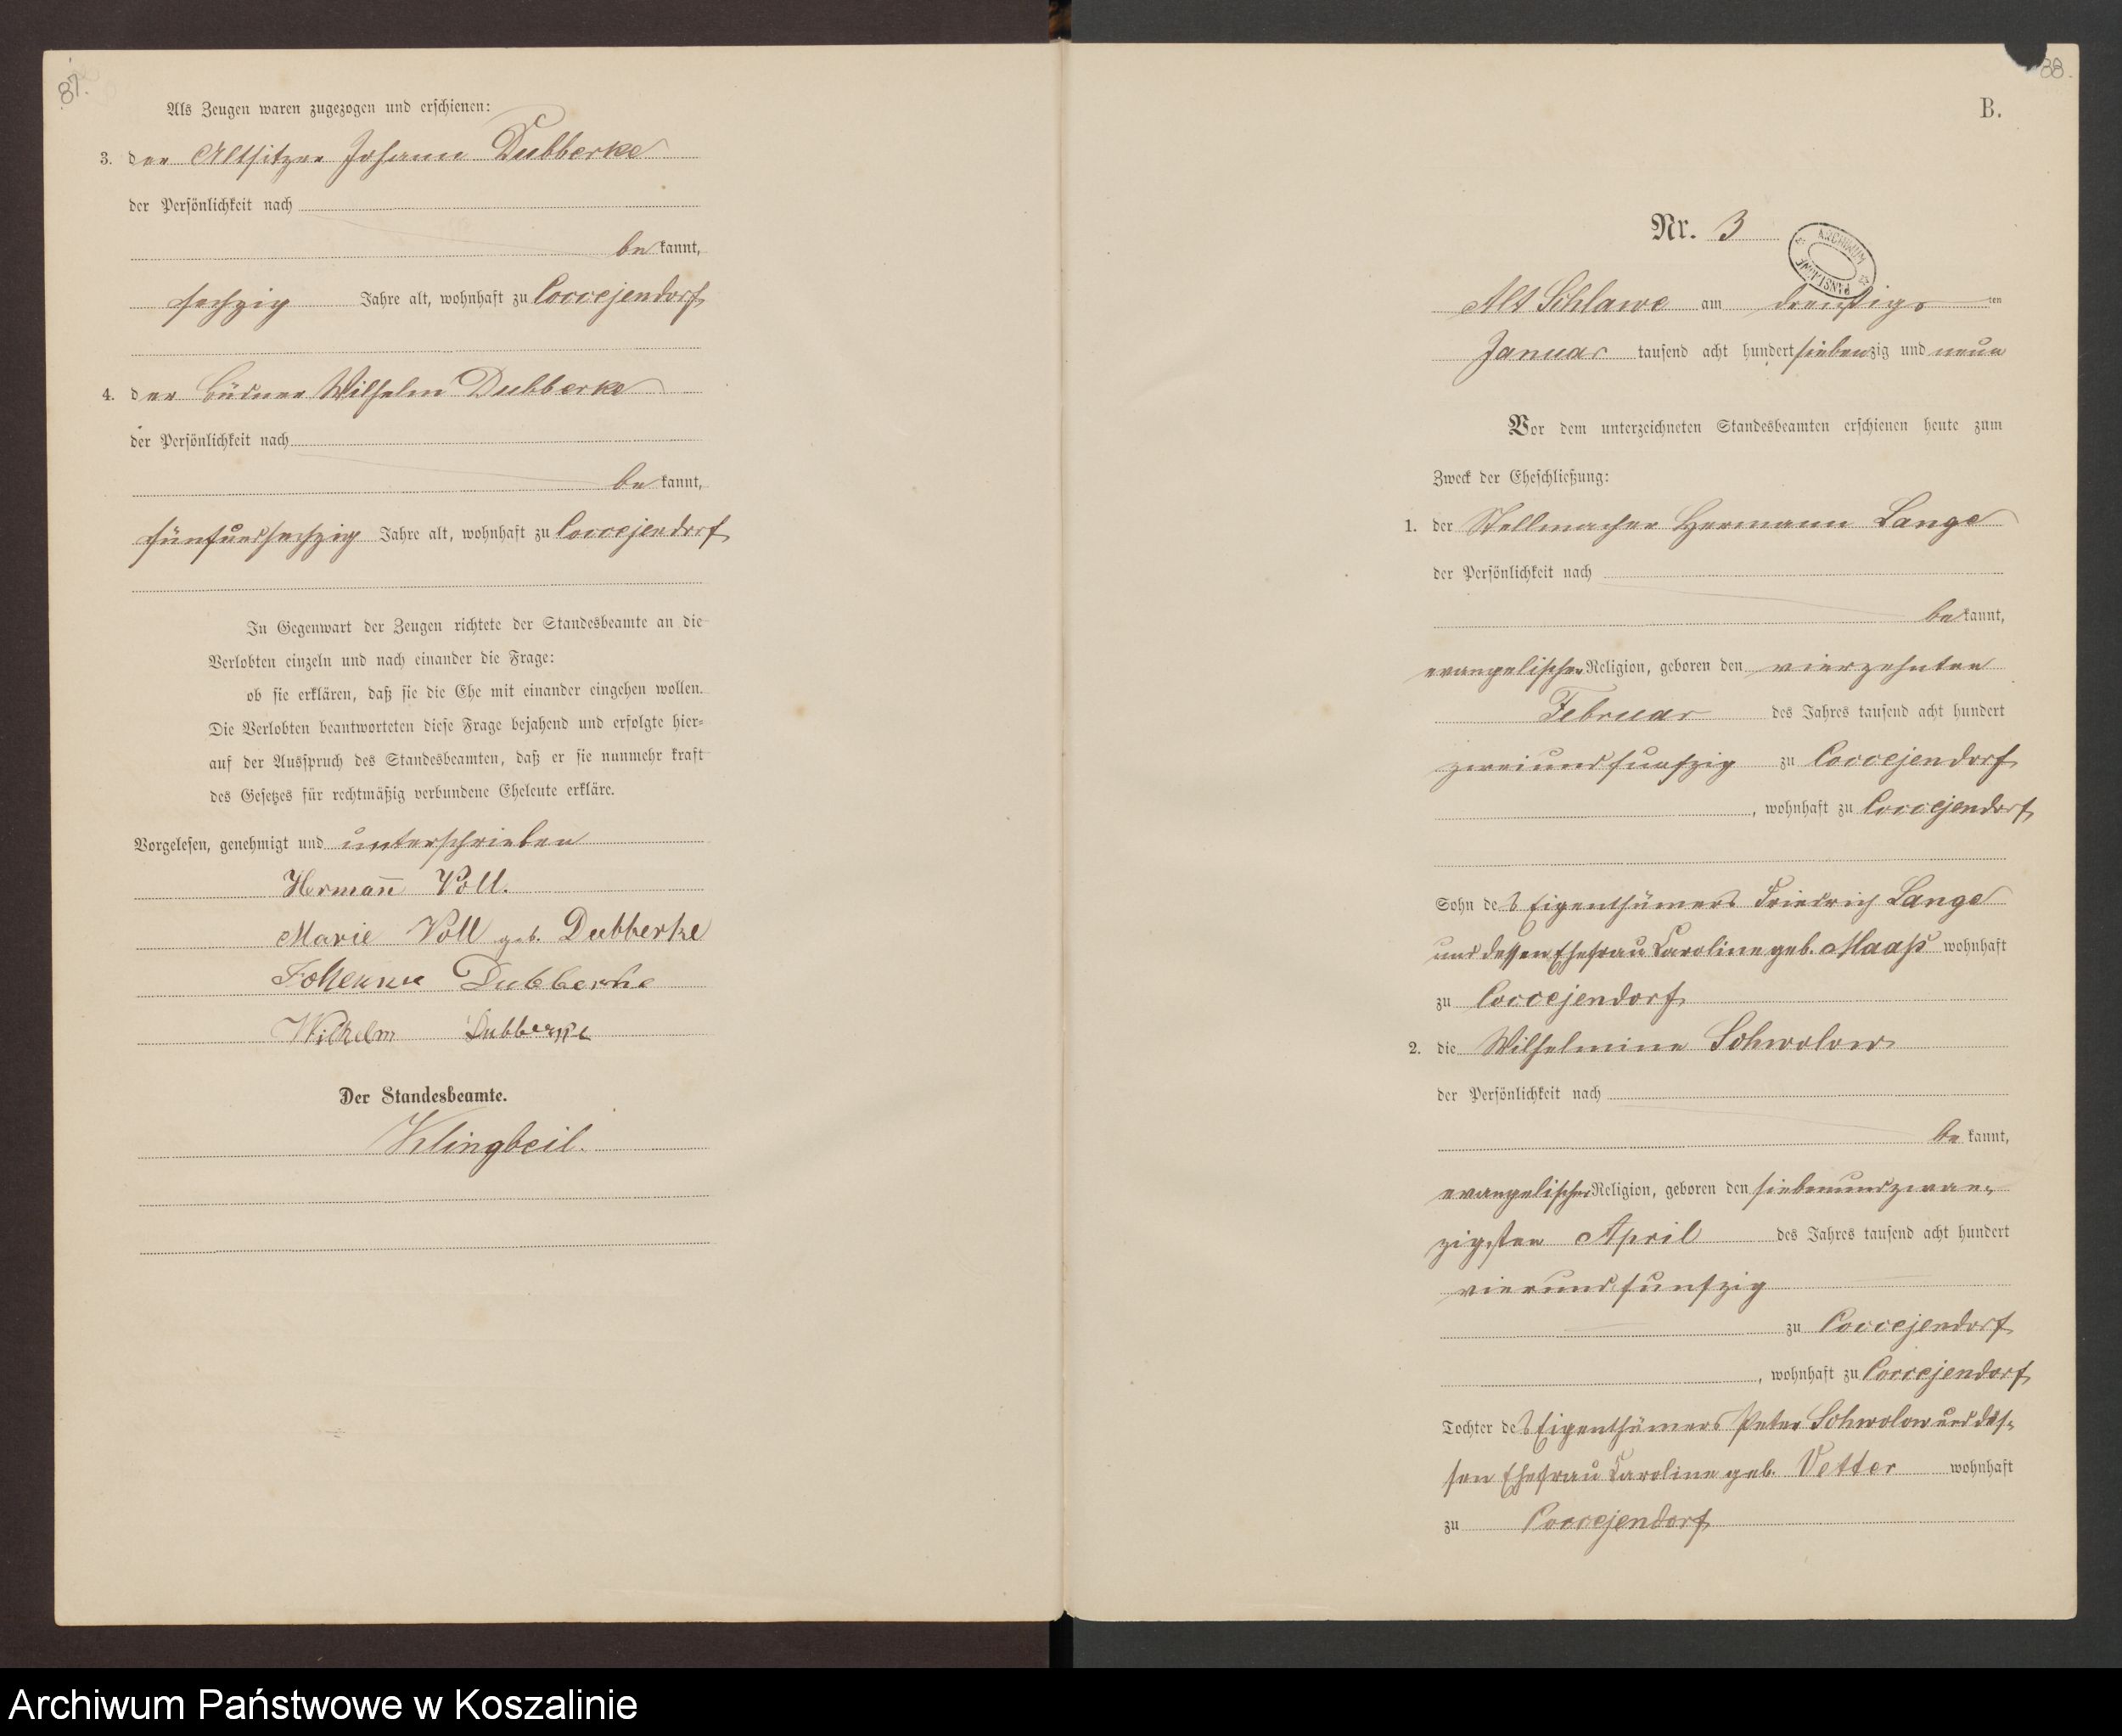 87.
Als Zeugen waren zugezogen und erschienen:
3. der Altsitzer Johann Dubberke
der Persönlichkeit nach
bekannt,
sechzig Jahre alt, wohnhaft zu Coccejendorf
4. der Büdner Wilhelm Dubberke
der Persönlichkeit nach
bekannt,
fünfundsechzig Jahre alt, wohnhaft zu Coccejendorf
In Gegenwart der Zeugen richtete der Standesbeamte an die
Verlobten einzeln und nach einander die Frage:
ob sie erklären, daß sie die Ehe mit einander eingehen wollen.
Die Verlobten beantworteten diese Frage bejahend und erfolgte hier-
auf der Ausspruch des Standesbeamten, daß er sie nunmehr kraft
des Gesetzes für rechtmäßig verbundene Eheleute erkläre.
Vorgelesen, genehmigt und unterschrieben
Hermann Voll.
Marie Voll geb. Dubberke
Johann Dubberke
Wilhelm Dubberke
Der Standesbeamte.
Klingbeil.
88.
B.
Nr. 3
ARCHIWUM PAŃSTWOWE
Alt Schlawe am dreißigsten
Januar tausend acht hundert siebenzig und neun
Vor dem unterzeichneten Standesbeamten erschienen heute zum
Zweck der Eheschließung:
1. der Stellmacher Hermann Lange
der Persönlichkeit nach
bekannt,
evangelischer Religion, geboren den vierzehnten
Februar des Jahres tausend acht hundert
zweiundfunfzig zu Coccejendorf
, wohnhaft zu Coccejendorf
Sohn des Eigenthümers Friedrich Lange
und dessen Ehefrau Caroline geb. Maaß wohnhaft
zu Coccejendorf
2. die Wilhelmine Schwolow
der Persönlichkeit nach
bekannt,
evangelischer Religion, geboren den siebenundzwan-
zigsten April des Jahres tausend acht hundert
vierundfunfzig
zu Coccejendorf
, wohnhaft zu Coccejendorf
Tochter des Eigenthümers Peter Schwolow und des-
sen Ehefrau Caroline geb. Vetter wohnhaft
zu Coccejendorf
Archiwum Państwowe w Koszalinie